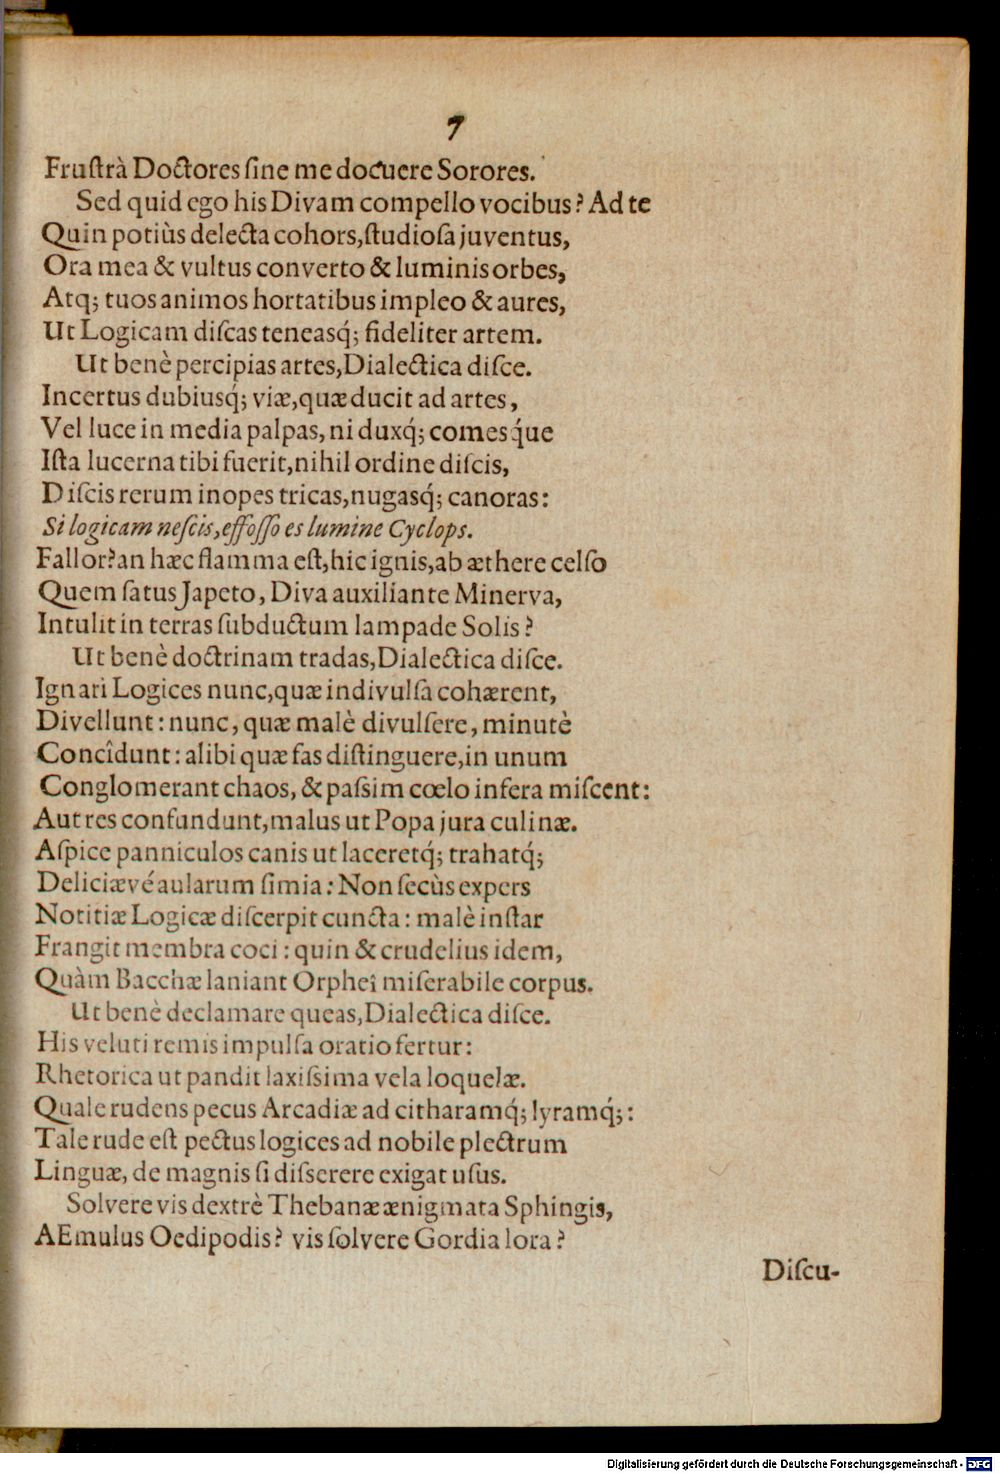 7
Frustrà Doctores sine me docuere Sorores.
Sed quid ego his Divam compello vocibus? Ad te
Quin potiùs delecta cohors, studiosa juventus,
Ora mea & vultus converto & luminis orbes,
Atq; tuos animos hortatibus impleo & aures,
Ut Logicam discas teneasq́; fideliter artem.
Ut benè percipias artes, Dialectica disce.
Incertus dubiusq́; viæ, quæ ducit ad artes,
Vel luce in media palpas, ni duxq́; comesq́ue
Ista lucerna tibi fuerit, nihil ordine discis,
Discis rerum inopes tricas, nugasq́; canoras:
Si logicam nescis, effosso es lumine Cyclops.
Fallor? an hæc flamma est, hic ignis, ab æthere celso
Quem satus Japeto, Diva auxiliante Minerva,
Intulit in terras subductum lampade Solis?
Ut benè doctrinam tradas, Dialectica disce.
Ignari Logices nunc, quæ indivulsa cohærent,
Divellunt: nunc, quæ malè divulsere, minutè
Concîdunt: alibi quæ fas distinguere, in unum
Conglomerant chaos, & passim cœlo infera miscent:
Aut res confundunt, malus ut Popa jura culinæ.
Aspice panniculos canis ut laceretq́; trahatq́;
Deliciævé aularum simia: Non secùs expers
Notitiæ Logicæ discerpit cuncta: malè instar
Frangit membra coci: quin & crudelius idem,
Quàm Bacchæ laniant Orphei miserabile corpus.
Ut benè declamare queas, Dialectica disce.
His veluti remis impulsa oratio fertur:
Rhetorica ut pandit laxissima vela loquelæ.
Quale rudens pecus Arcadiæ ad citharamq́; lyramq́;:
Tale rude est pectus logices ad nobile plectrum
Linguæ, de magnis si disserere exigat usus.
Solvere vis dextrè Thebanæ ænigmata Sphingis,
AEmulus Oedipodis? vis solvere Gordia lora?
Discu-
Digitalisierung gefördert durch die Deutsche Forschungsgemeinschaft - DFG